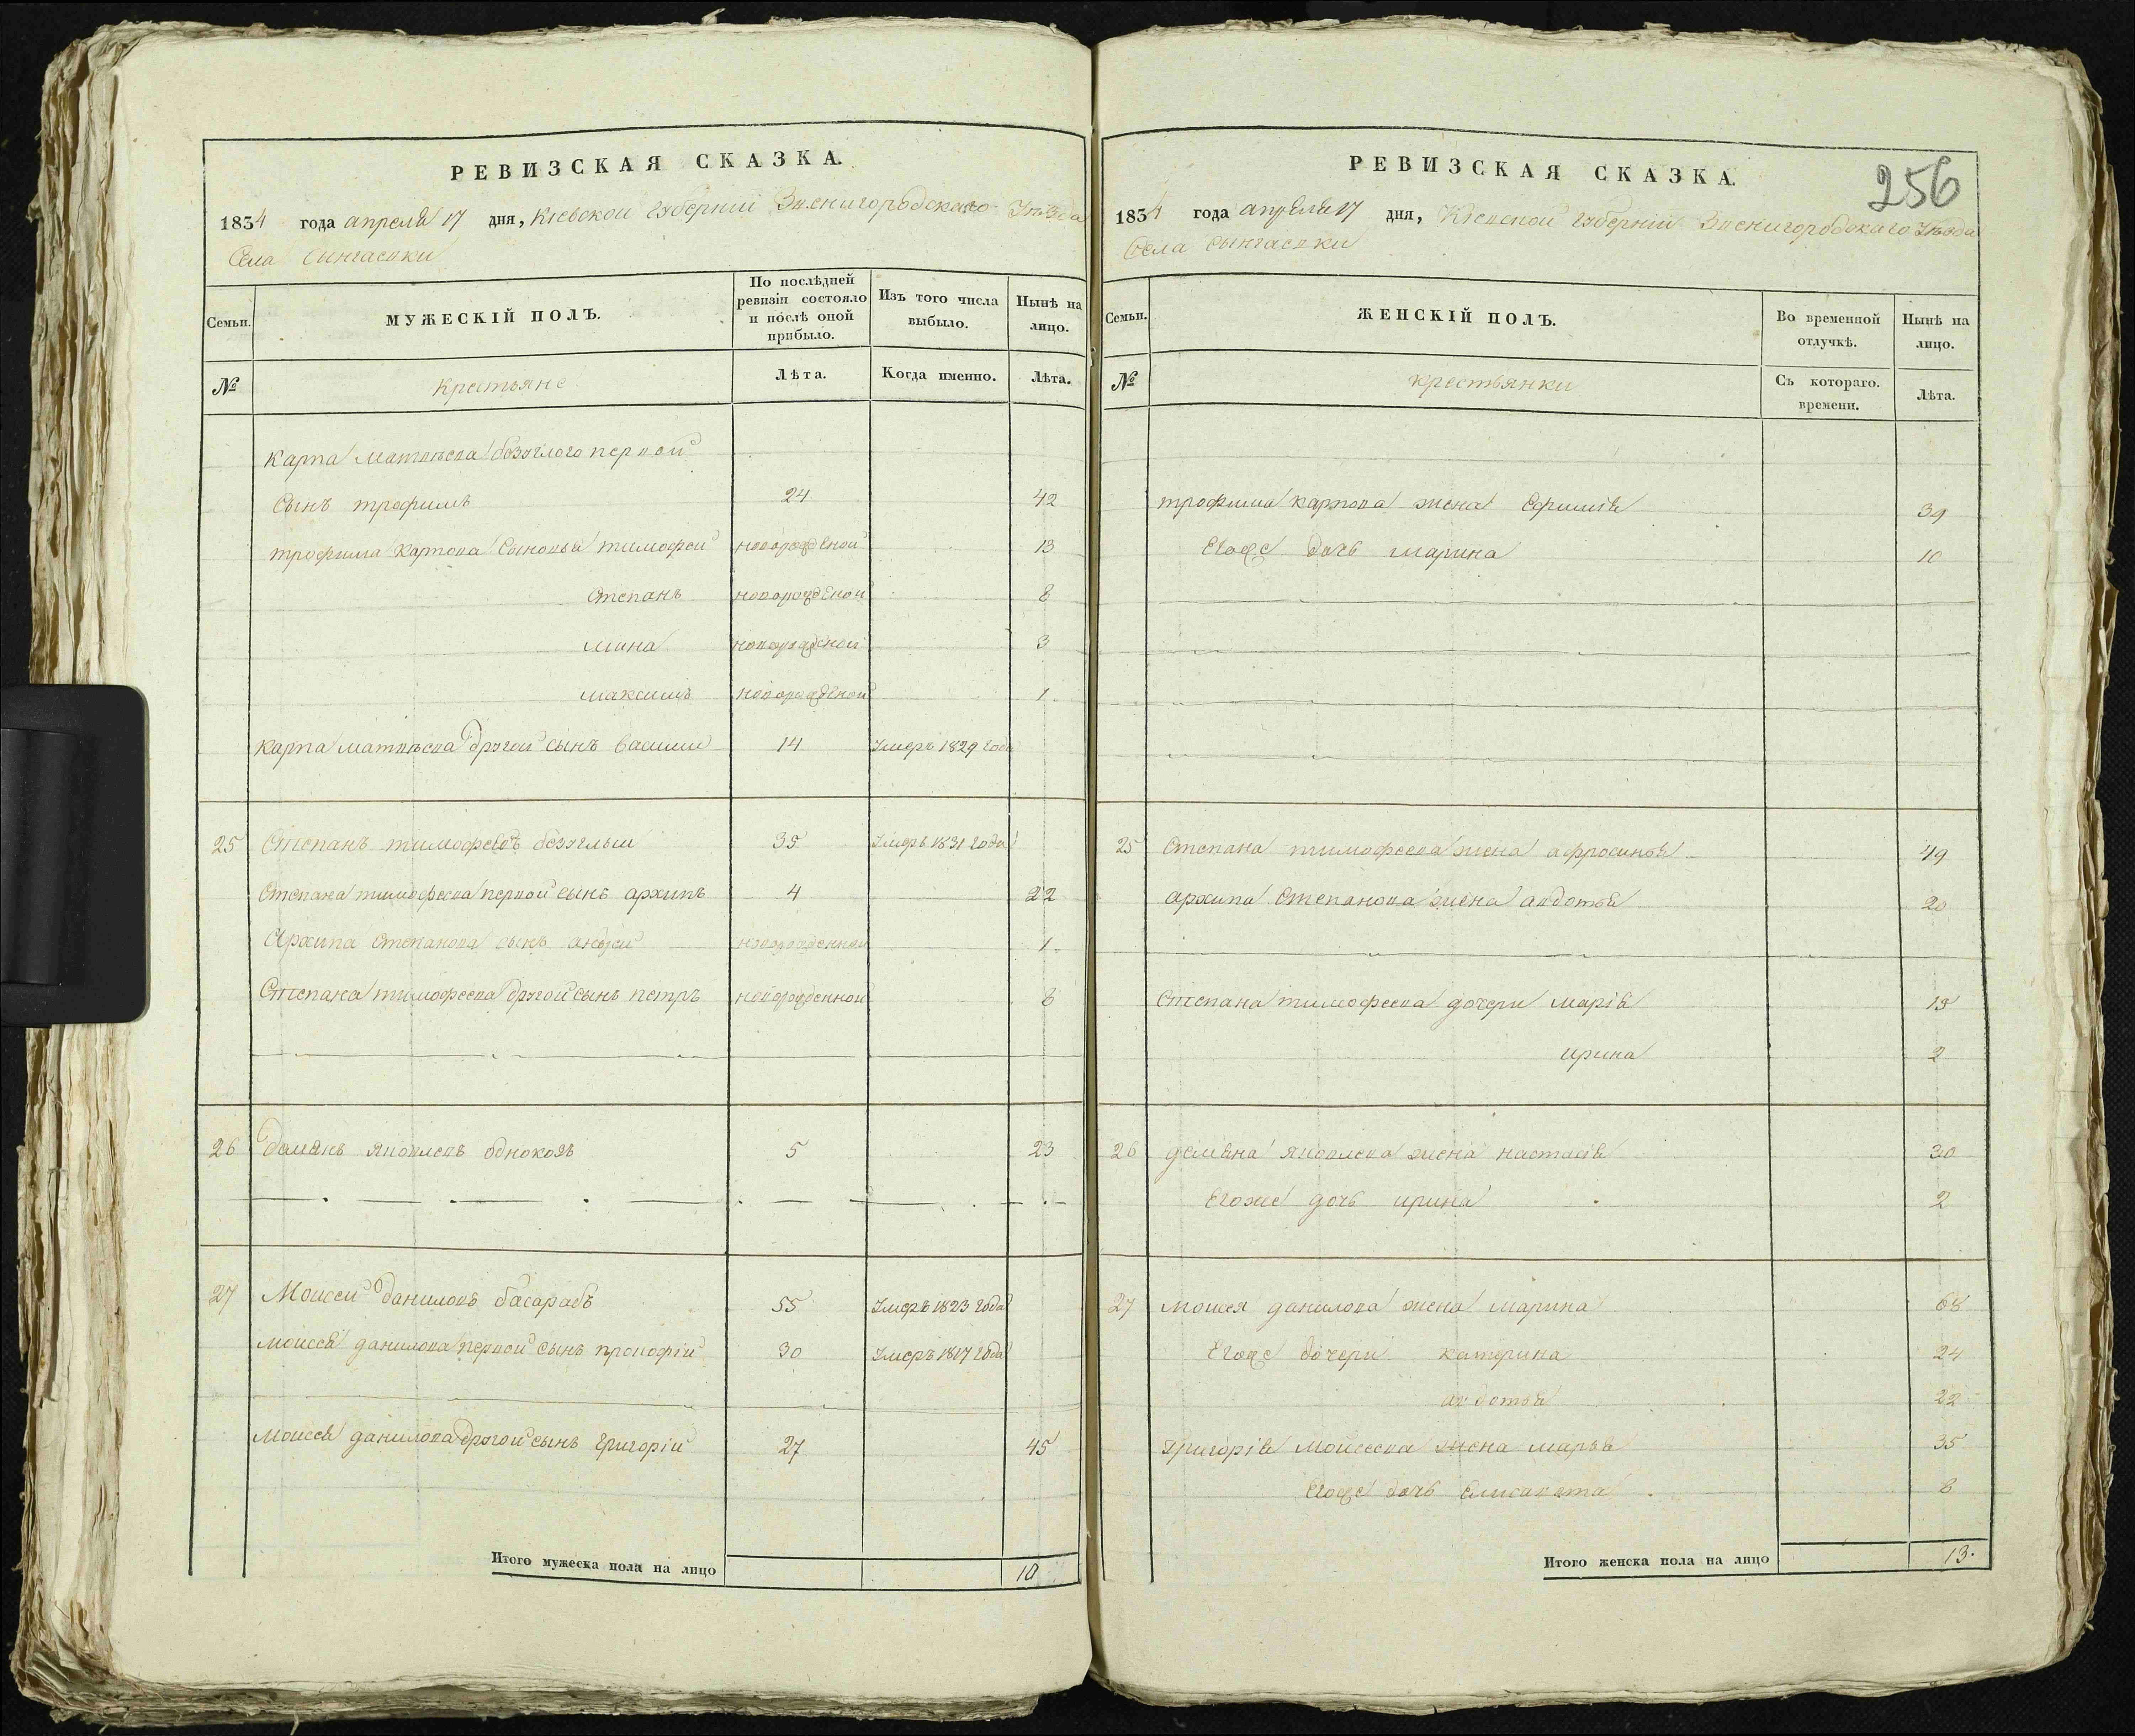 РЕВИЗСКАЯ СКАЗКА.
1834 года апреля 17 дня, Киевской губернии Звенигородского Уѣзда
Села Сингаевки
Семьи. МУЖЕСКІЙ ПОЛЪ. По послѣдней ревизіи состояло и послѣ оной прибыло. Изъ того числа выбыло. Нынѣ на лицо.
№ Крестьяне Лѣта. Когда именно. Лѣта.
Карпа Матвѣева безуглого первой
Сынъ трофимъ 24 42
трофима Карпова Сыновья тимофей новорожденой 13
Степанъ новорожденой 8
мина новорожденой 3
максимъ новорожденой 1
карпа матвѣева другой сынъ василий 14 Умеръ 1829 года
25 Степанъ тимофеевъ безуглый 35 Умеръ 1831 года
Степана тимофеева первой сынъ архипъ 4 22
Архипа Степанова сынъ новорожденной 1
Степана тимофеева другой сынъ петръ новорожденной 6
26 Яковлевъ 5 23
27 Моисей даниловъ басарабъ 55 Умеръ 1823 года
Моисея данилова первой сынъ прокофій 30 Умеръ 1817 года
Моисея данилова другой сынъ григорій 27 45
Итого мужеска пола на лицо 10
РЕВИЗСКАЯ СКАЗКА. 256
1834 года апреля 17 дня, Кіевской губерніи Звенигородскаго Уѣзда
Села Сынгаевки
Семьи. ЖЕНСКІЙ ПОЛЪ. Во временной отлучкѣ. Нынѣ на лицо.
№ крестьянки Съ котораго. времени. Лѣта.
трофима карпова жена Ефимія 39
Егоже дочь марина 10
25 Степана тимофеева жена афросинья 49
архипа Степанова жена авдотья 20
Степана тимофеева дочери марія
ирина 2
26 демяна яковлева жена настасія 30
Егоже дочь ирина 2
27 моисея данилова жена марина 68
Егоже дочери катерина 24
авдотья 22
Григорія моисеева жена марья 35
Егоже дочь Елисавета 8
Итого женска пола на лицо 13.